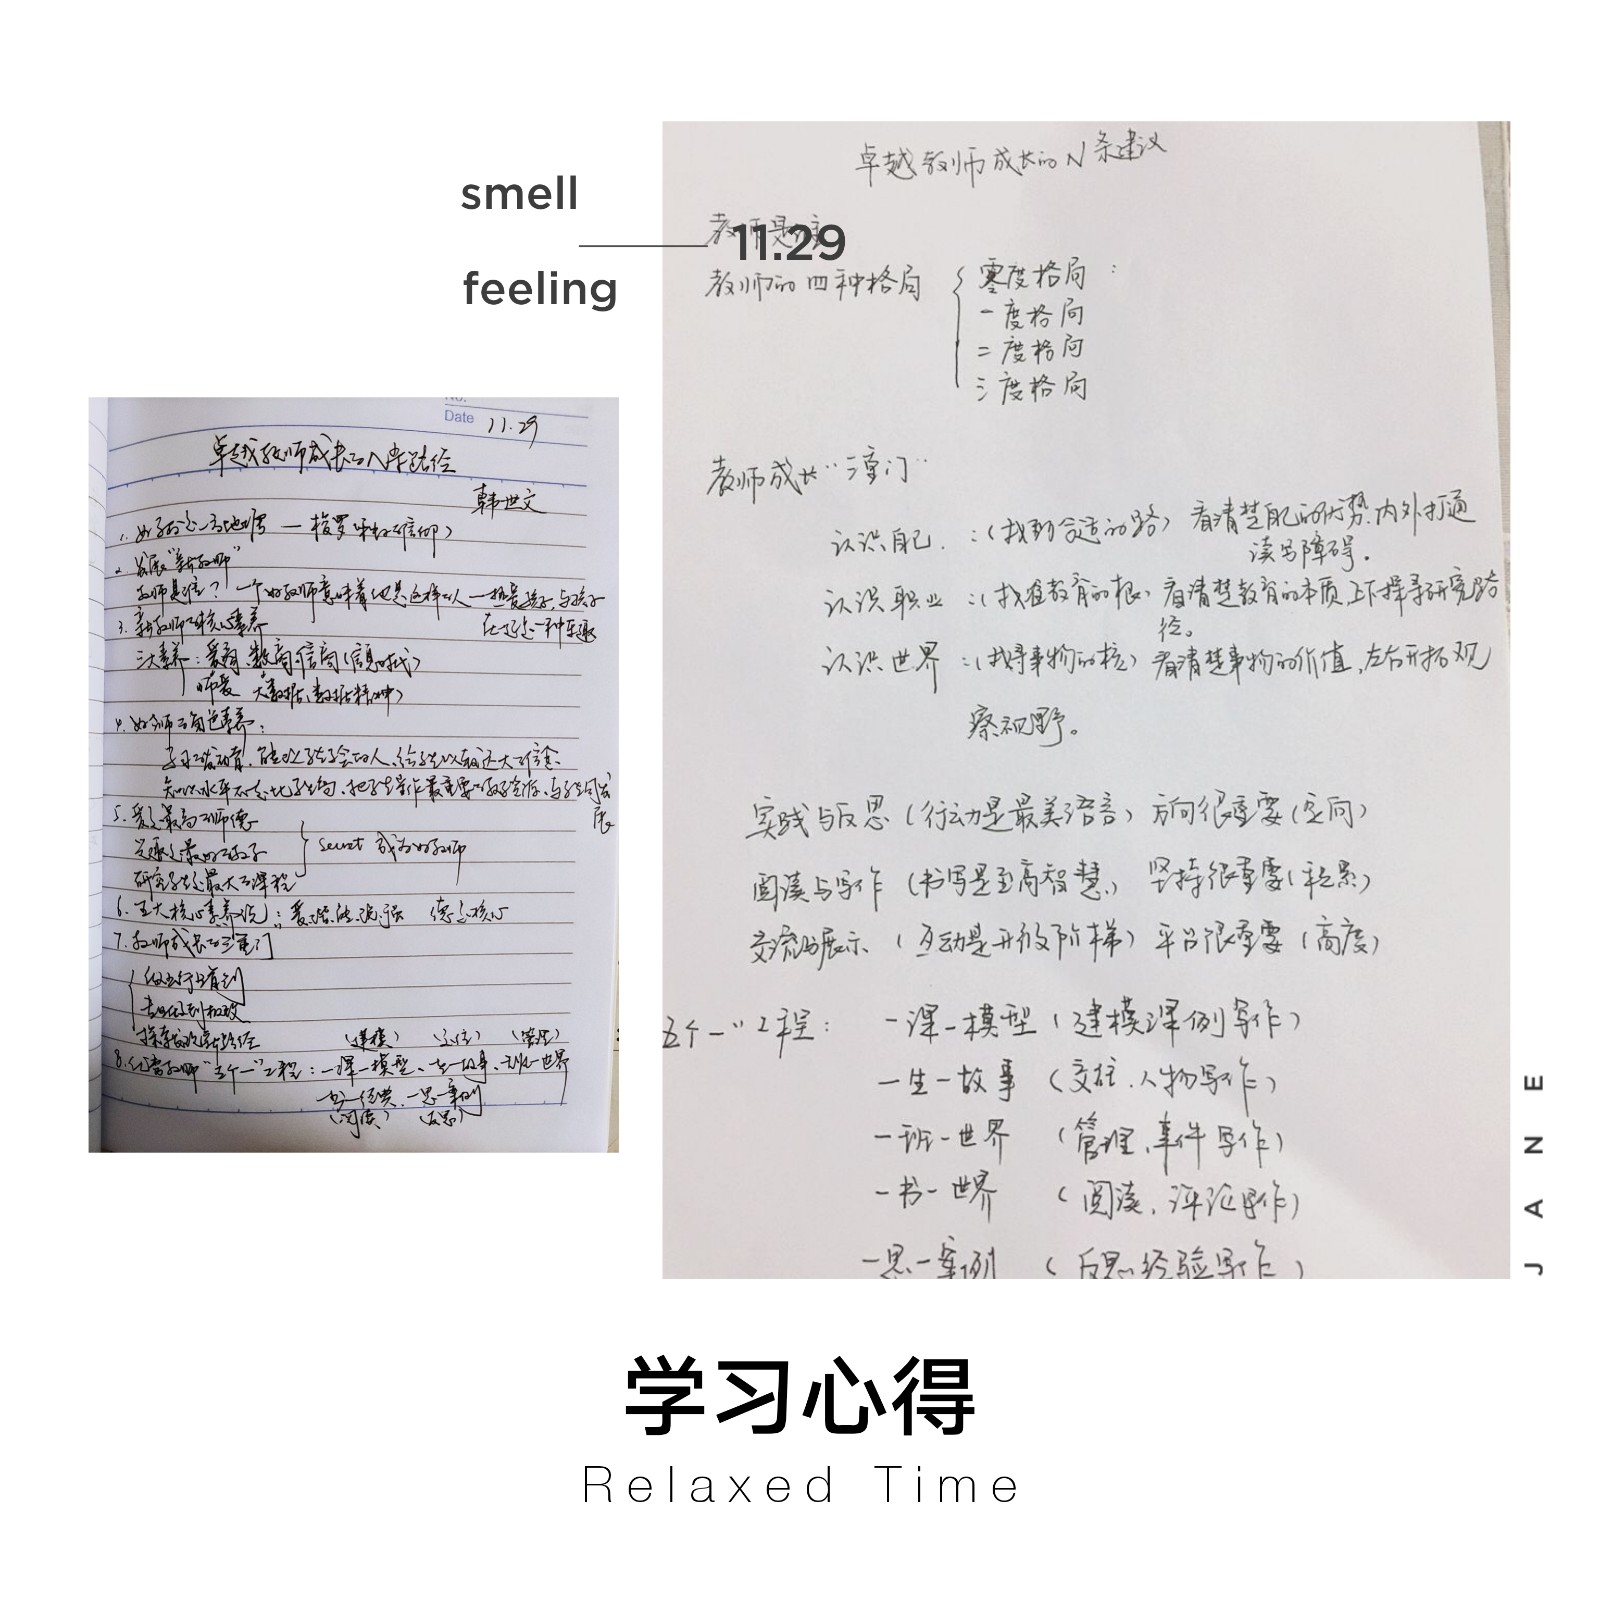 smell
11.29
feeling
卓越教师成长的N条建议
教师是谁
教师的四种格局
零度格局：
一度格局
二度格局
三度格局
教师成长“三重门”
认识自己：（找到合适的路）看清楚自己的优势，内外打通
读写障碍。
认识职业：（找准教育的根）看清楚教育的本质，上下探寻研究路
径。
认识世界：（找寻事物的核）看清楚事物的价值，左右开拓观
察视野。
实践与反思（行动是最美语言）方向很重要（定向）
阅读与写作（书写是至高智慧）坚持很重要（积累）
交流与展示（互动是开放阶梯）平台很重要（高度）
五个一”工程：一课一模型（建模课例写作）
一生一故事（交往、人物写作）
一班一世界（管理、事件写作）
一书一世界（阅读、评论写作）
一思一案例（反思经验写作）
No.
Date 11.29
卓越教师成长的N条路径
韩世文
2. 发展“新教师”
教师是谁？一个好教师意味着他是这样的人—热爱孩子，与孩子
在一起是一种乐趣
3. 新教师的核心素养
三大素养：爱商、数商、信商（信息时代）
师爱 大数据（数据精神）
4. 好教师的角色素养：
展
5. 爱是最高的师德
兴趣是最好的
研究学生是最大的课程
secret 成为好教师
6. 五大核心素养说： 德是核心
7. 教师成长的三重门
（建模）（交往）（管理）
8. 优秀教师“五个一”工程：一课一模型、一生一故事、一班一世界
一书一经典、一思一案例
（阅读）（反思）
JANE
学习心得
Relaxed Time